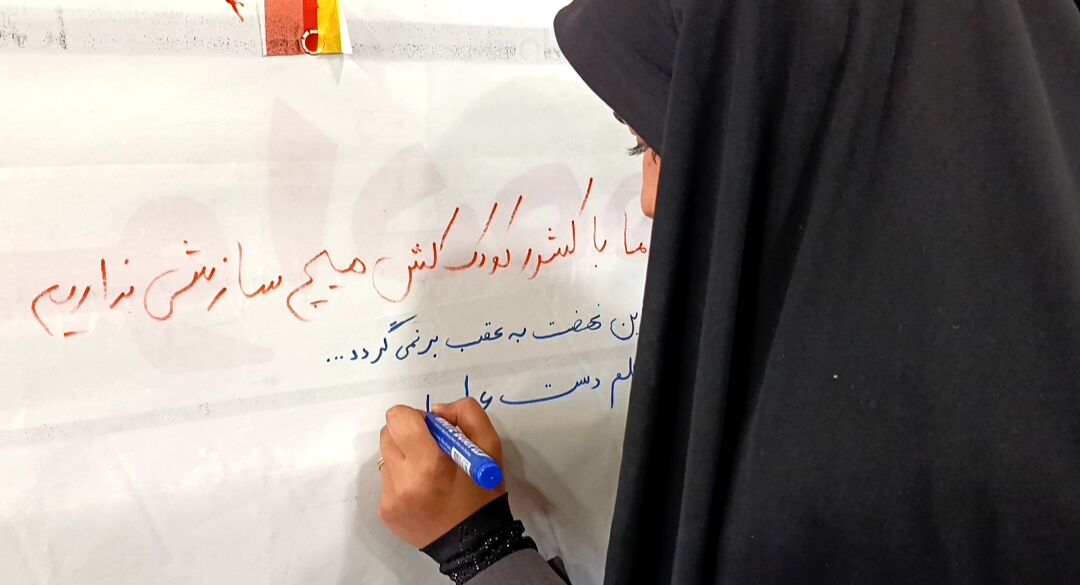 ما با کشور کودک کش هیچ سازشی نداریم
این نهضت به عقب برنمی گردد...
دست